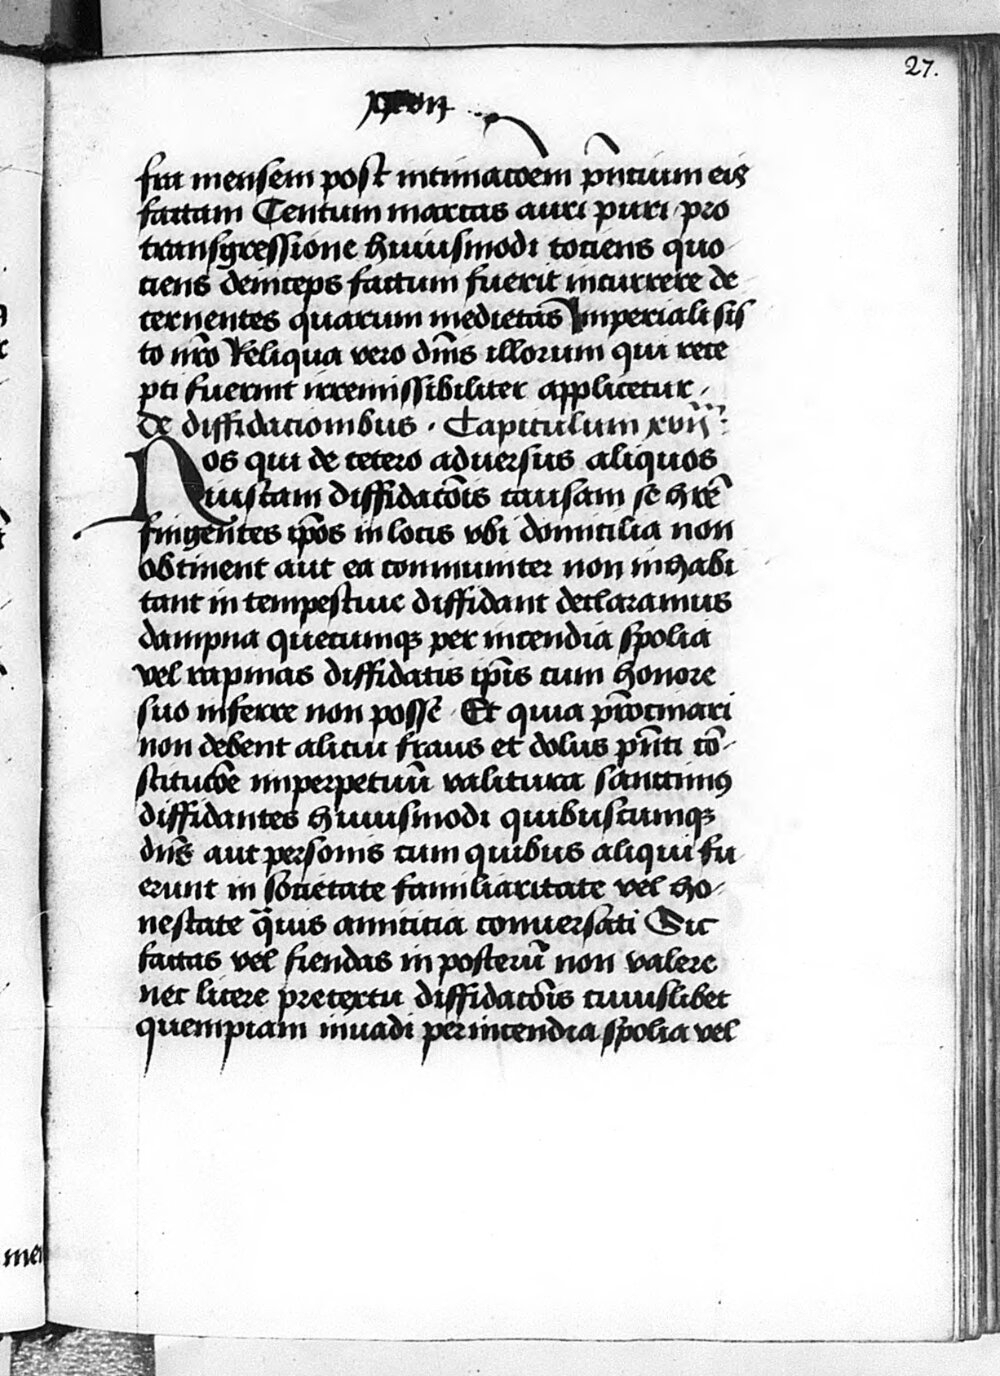 27.
xxvii
fra mensem post intimacōem p̄ntium eis
factam Centum marcas auri puri pro
transgressione huiusmodi tociens quo
ciens deinceps factum fuerit incurrere de
cernentes quarum medietas Imperiali fis
co nr̄o Reliqua vero dn̄is illorum qui rece
pti fuerint irremissibiliter applicetur
De diffidacionibus . Capitulum xvii
Nos qui de cetero adversus aliquos
iustam diffidacōis causam se hr̄e
fingentes ip̄os in locis vbi domicilia non
obtinent aut ea communiter non inhabi
tant in tempestiue diffidant declaramus
dampna quecumqꝫ per incendia spolia
vel rapinas diffidatis ip̄is cum honore
suo inferre non posse Et quia pr̄ocinari
non debent alicui fraus et dolus p̄nti cō
stitucōe imperpetuū valitura sanccimꝰ
diffidantes huiusmodi quibuscumqꝫ
dn̄is aut personis cum quibus aliqui fu
erunt in societate familiaritate vel ho
nestate q̄uis amicicia conuersati Sic
factas vel fiendas in posterū non valere
nec licere pretextu diffidacōis cuiuslibet
quempiam inuadi per incendia spolia vel
men